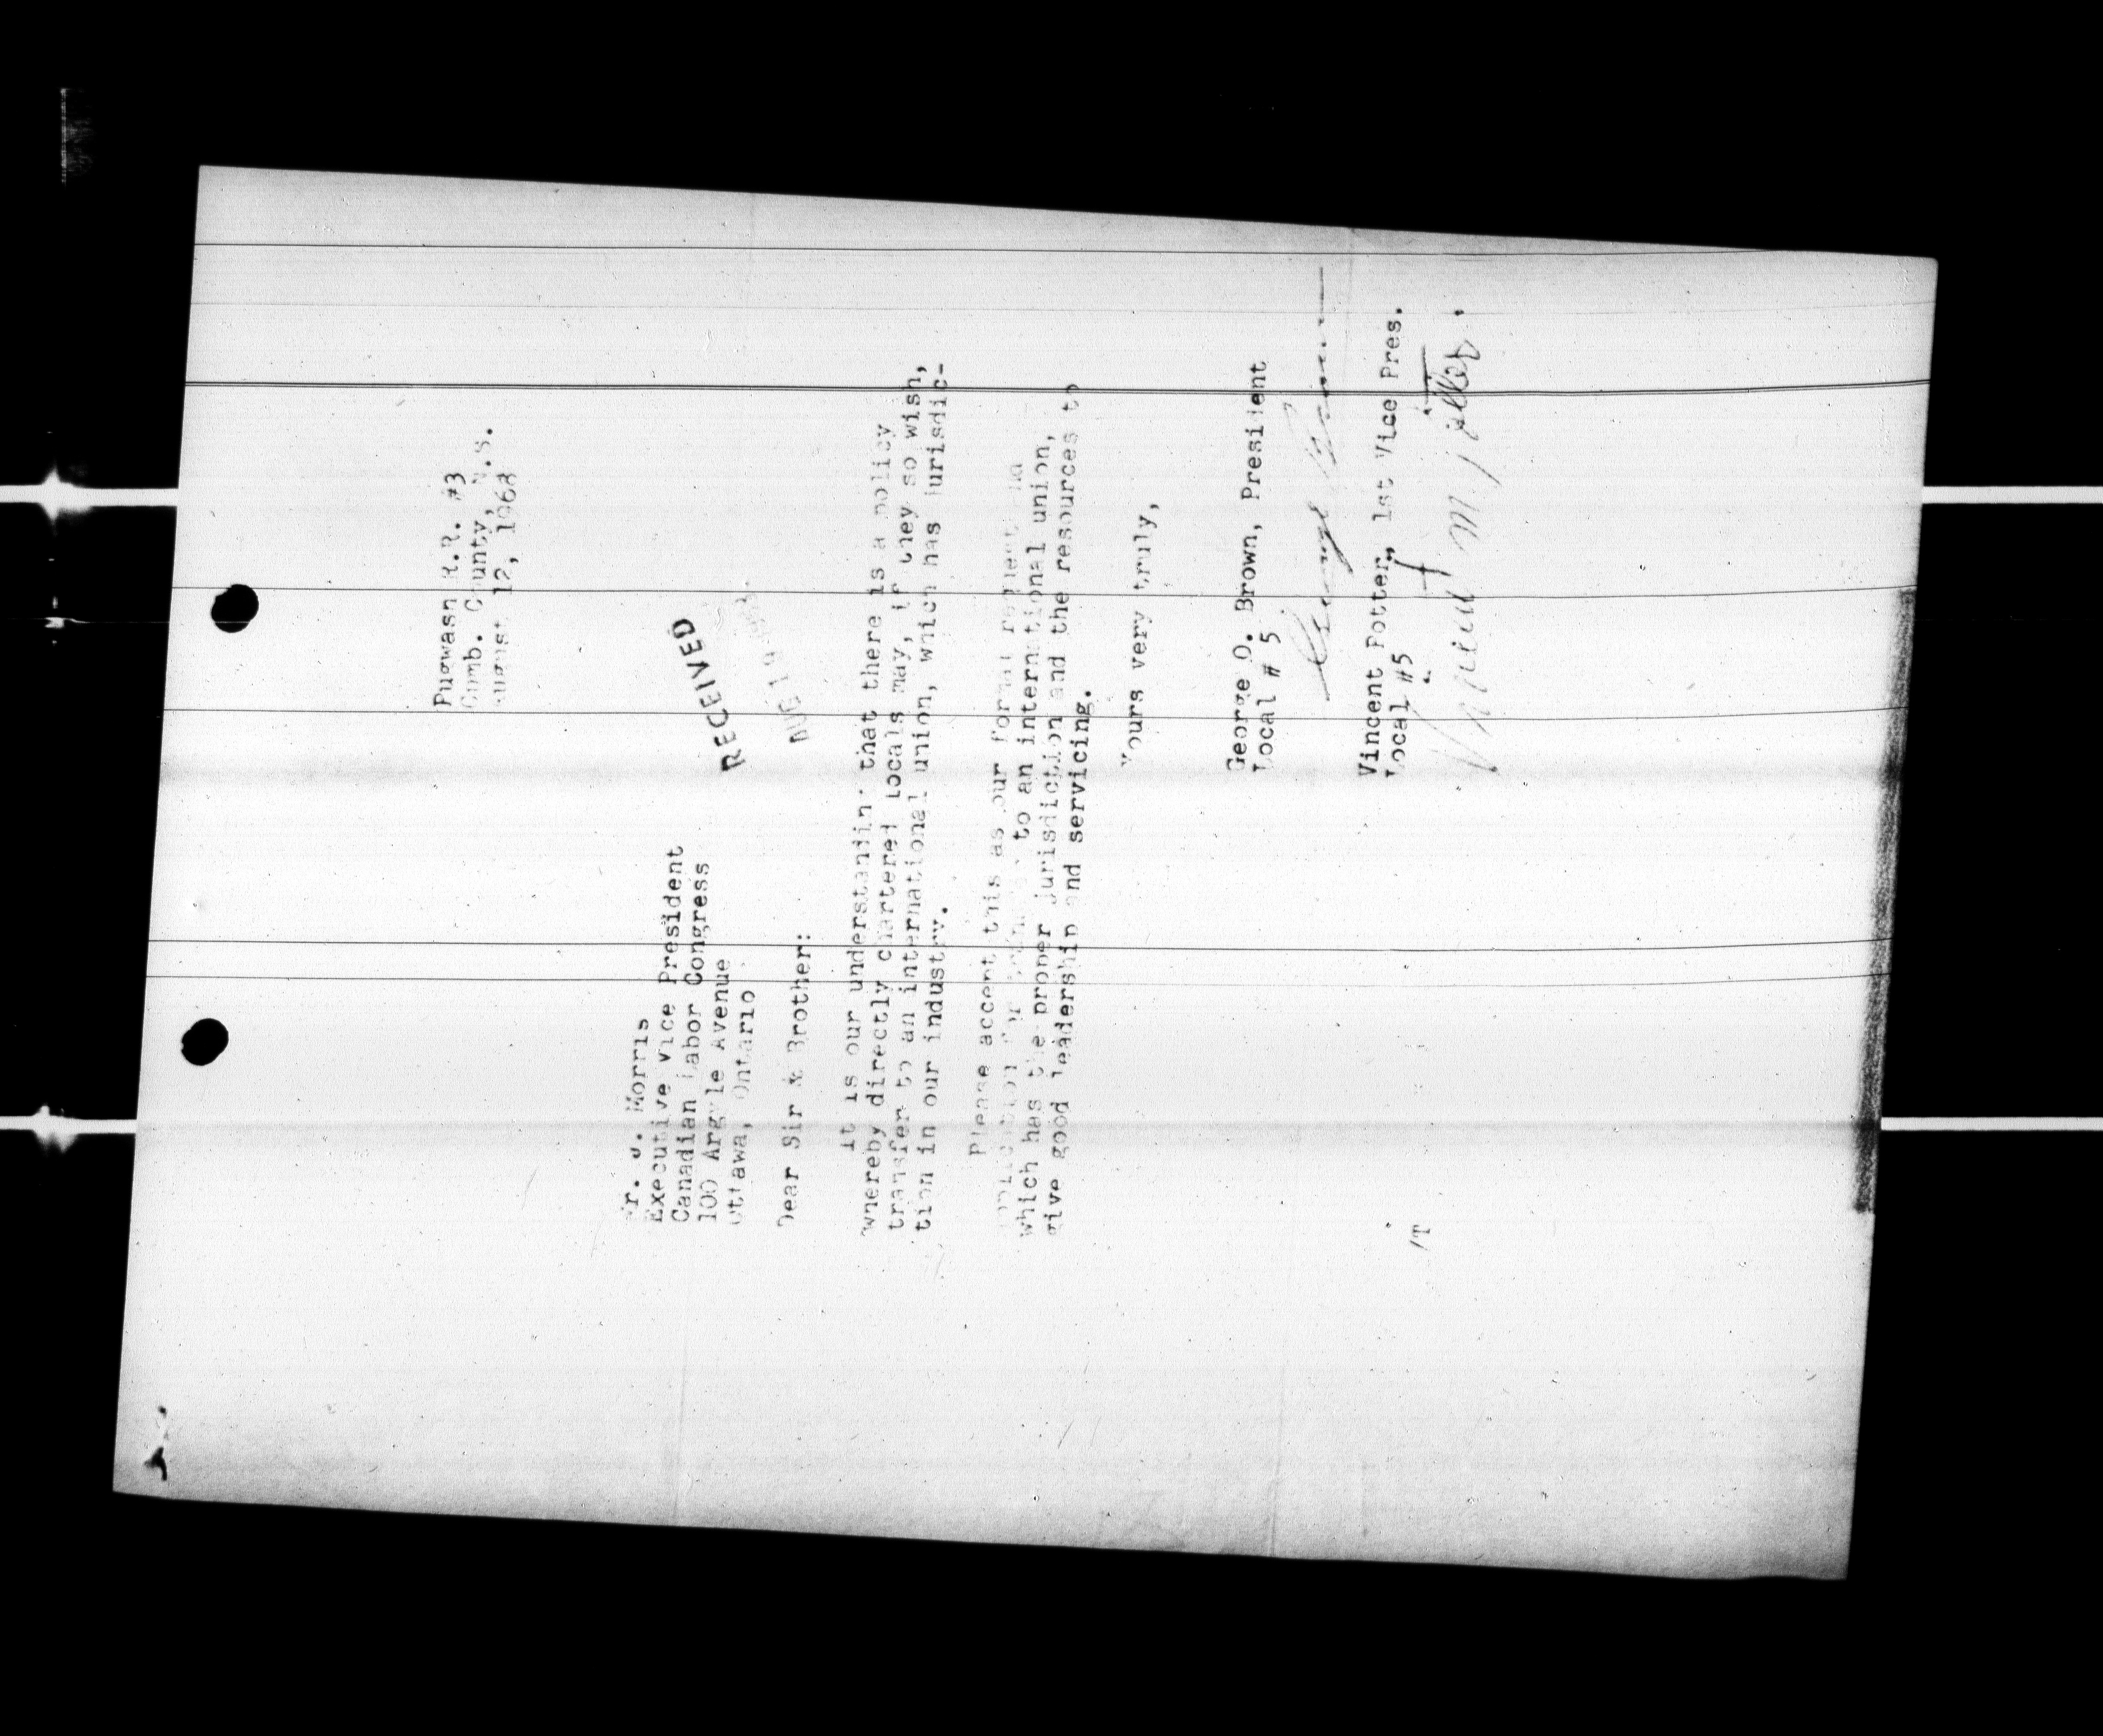 Pugwash R.R. #3
Cumb. County, N.S.
August 12, 1968
Mr. J. Morris
Executive Vice President
Canadian Labor Congress
100 Argyle Avenue
Ottawa, Ontario
RECEIVED
AUG 19 1968
Dear Sir & Brother:
It is our understanding that there is a policy
whereby directly chartered locals may, if they so wish,
transfer to an international union, which has jurisdic-
tion in our industry.
Please accept this as our formal request and
application for to an international union,
which has the proper jurisdiction and the resources to
give good leadership and servicing.
Yours very truly,
George O. Brown, President
Local # 5
George Brown
Vincent Potter, 1st Vice Pres.
Local #5
Vincent M Potter.
/T